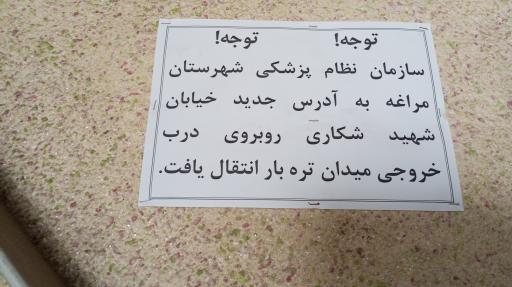 توجه! توجه!
سازمان نظام پزشکی شهرستان
مراغه به آدرس جدید خیابان
شهید شکاری روبروی درب
خروجی میدان تره بار انتقال یافت.